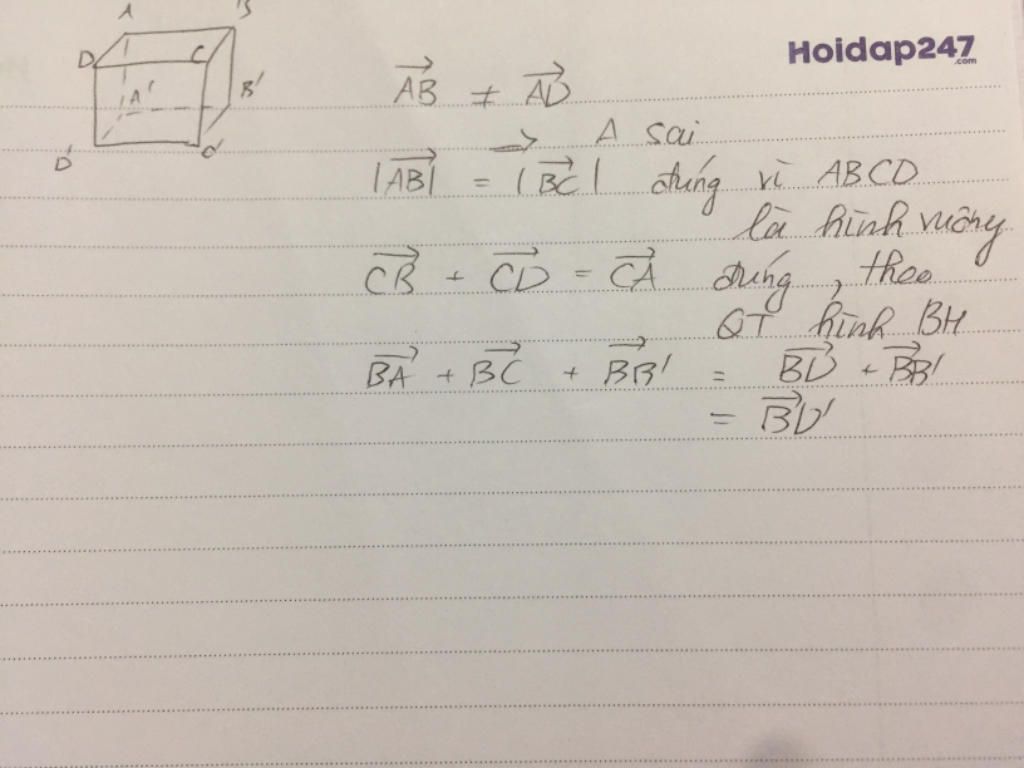 A B
D C
A' B'
D' C'
Hoidap247
.com
$\overrightarrow{AB} \neq \overrightarrow{AD}$
→ A sai
$|\overrightarrow{AB}| = |\overrightarrow{BC}|$ đúng vì ABCD
là hình vuông
$\overrightarrow{CB} + \overrightarrow{CD} = \overrightarrow{CA}$ đúng, theo
QT hình BH
$\overrightarrow{BA} + \overrightarrow{BC} + \overrightarrow{BB'} = \overrightarrow{BD} + \overrightarrow{BB'}$
$= \overrightarrow{BD'}$